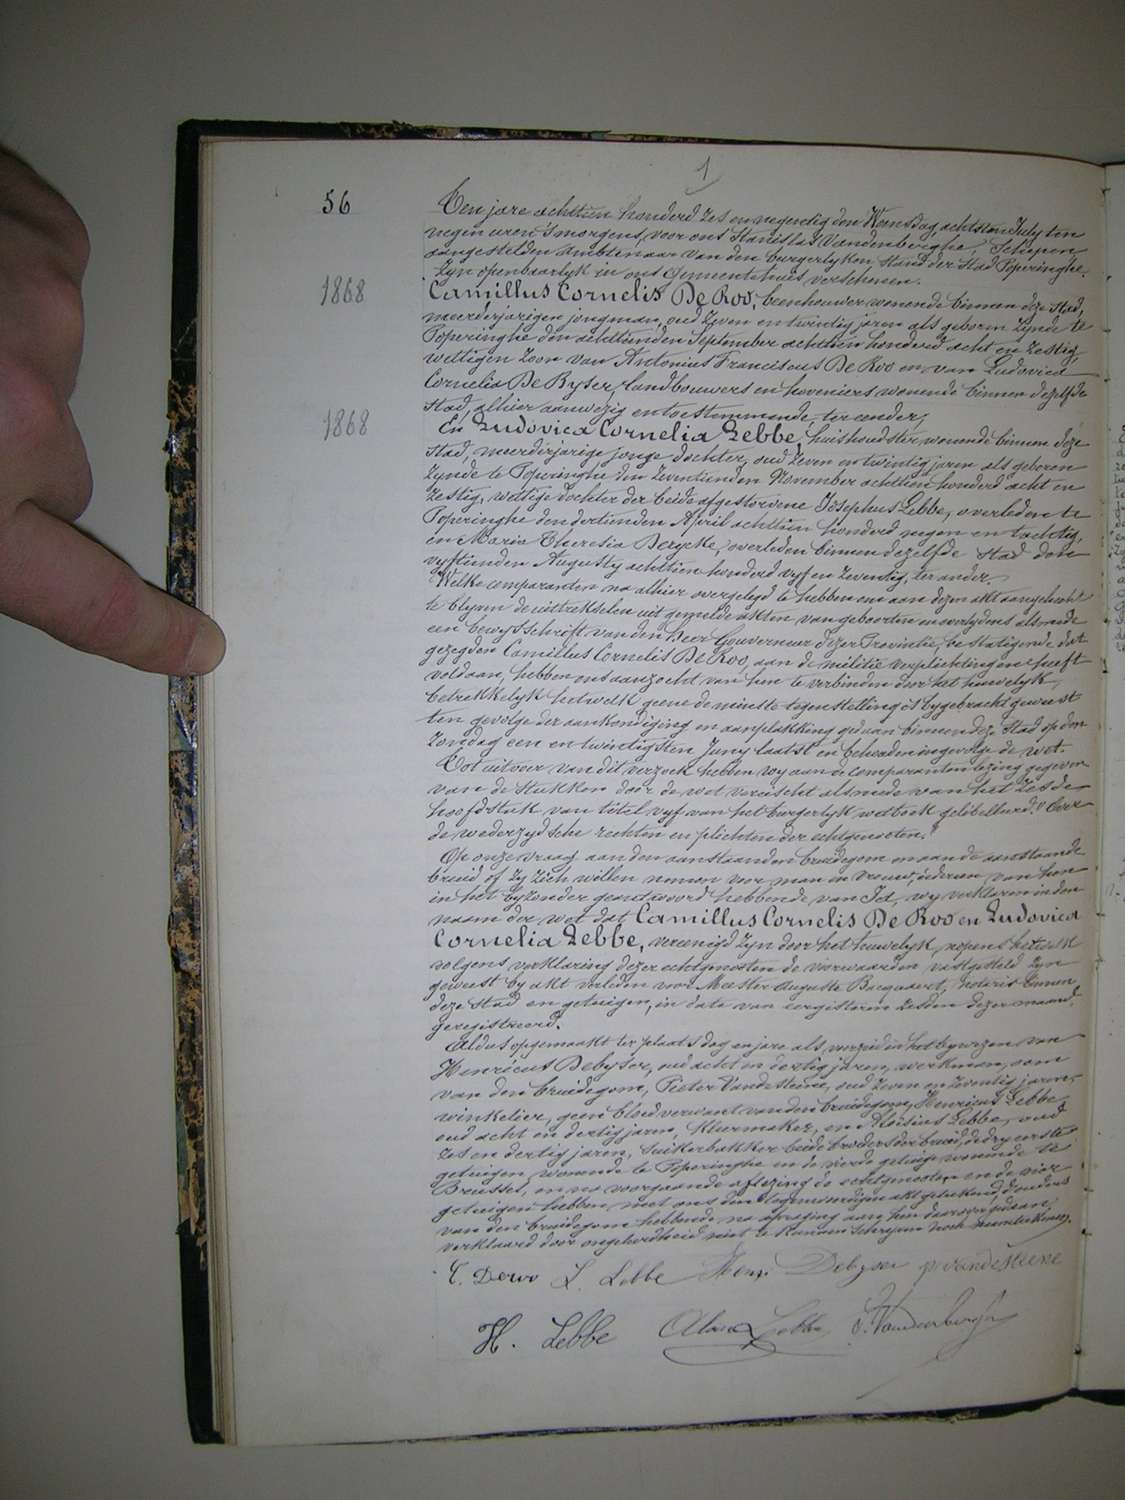 1
56
Ten jare achttien honderd zes en negendig den Woensdag, achtsten July ten
negen uren 's morgens, voor ons Stanislas Vandenberghe, Schepen
aangestelden Ambtenaar van den burgerlyken Stand der Stad Poperinghe.
Zyn openbaarlyk in ons Gemeentehuis verschenen.
1868
Camillus Cornelis De Roo, beenhouwer wonende binnen deze Stad,
meerderjarigen jongman, oud zeven en twintig jaren als geboren zynde te
Poperinghe den achttienden September achttien honderd acht en zestig,
wettigen zoon van Antonius Franciscus De Roo en van Ludovica
Cornelia De Byser, landbouwers en hoveniers wonende binnen dezelfde
Stad, alhier aanwezig en toestemmende, ter eender;
1868
En Ludovica Cornelia Lebbe, huishoudster, wonende binnen deze
Stad, meerderjarige jonge dochter, oud zeven en twintig jaren als geboren
zynde te Poperinghe den zeventienden November achttien honderd acht en
zestig, wettige dochter der beide afgestorvene Josephus Lebbe, overleden te
Poperinghe den dertienden April achttien honderd negen en tachtig,
en Maria Theresia Derycke, overleden binnen dezelfde Stad den
vyftienden Augusty achttien honderd vyf en zeventig, ter ander.
Welke comparanten na alhier overgelegd te hebben om aan dezen akt aangehecht
te blyven de uittrekselen uit gemelde akten van geboorten en overlydens alsmede
een bewysschrift van den Heer Gouverneur dezer Provintie, bestatigende dat
gezegden Camillus Cornelis De Roo, aan de militie verplichtingen heeft
voldaan, hebben ons aanzocht van hen te verbinden door het huwelyk,
betrekkelyk hetwelk geene de minste tegenstelling is bygebracht geweest
ten gevolge der aankondiging en aanplakking gedaan binnen deze Stad op den
Zondag een en twintigsten Juny laatst en behouden ingevolge de wet.
Tot uitvoer van dit verzoek hebben wy aan de comparanten lezing gegeven
van de stukken door de wet vereischt alsmede van het zesde
hoofdstuk van titel vyf van het burgerlyk wetboek gelibelleerd: "Over
de wederzydsche rechten en plichten der echtgenooten."
Op onze vraag aan den aanstaanden bruidegom en aan de aanstaande
bruid of zy zich willen nemen voor man en vrouw, iedereen van hen
in het byzonder geantwoord hebbende van Ja, wy verklaren in den
naam der wet dat Camillus Cornelis De Roo en Ludovica
Cornelia Lebbe, vereenigd zyn door het huwelyk, nopens hetwelk
volgens verklaring dezer echtgenooten de voorwaarden vastgesteld zyn
geweest by akt verleden voor Meester Auguste Becquaert, notaris binnen
deze Stad en getuigen, in date van eergisteren zesden dezer maand,
geregistreerd.
Aldus opgemaakt ter plaats dag en jare als voorzeid in het bywezen van
Henricus Debyser, oud acht en dertig jaren, werkman, oom
van den bruidegom, Pieter Vandesteene, oud zeven en zeventig jaren,
winkelier, geen bloedverwant van den bruidegom, Henricus Lebbe
oud acht en dertig jaren, kleermaker, en Aloisius Lebbe, oud
zes en dertig jaren, suikerbakker beide broeders der bruid, de dry eerste
getuigen, wonende te Poperinghe en de vierde getuige wonende te
Brussel, en na voorgaande aflezing de echtgenooten en de vier
getuigen hebben met ons den tegenwoordigen akt geteekend, de ouders
van den bruidegom hebbende na afvraging aan hen daarover gedaan,
verklaard door ongeleerdheid niet te kunnen schryven noch naamteekenen.
C. Deroo L. Lebbe Henri Debyser p. vandesteene
H. Lebbe Aloise Lebbe S. Vandenberghe